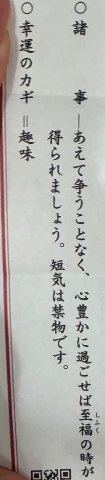 ○諸　　事―あえて争うことなく、心豊かに過ごせば至福の時が
しふく
得られましょう。短気は禁物です。
○幸運のカギ＝趣味